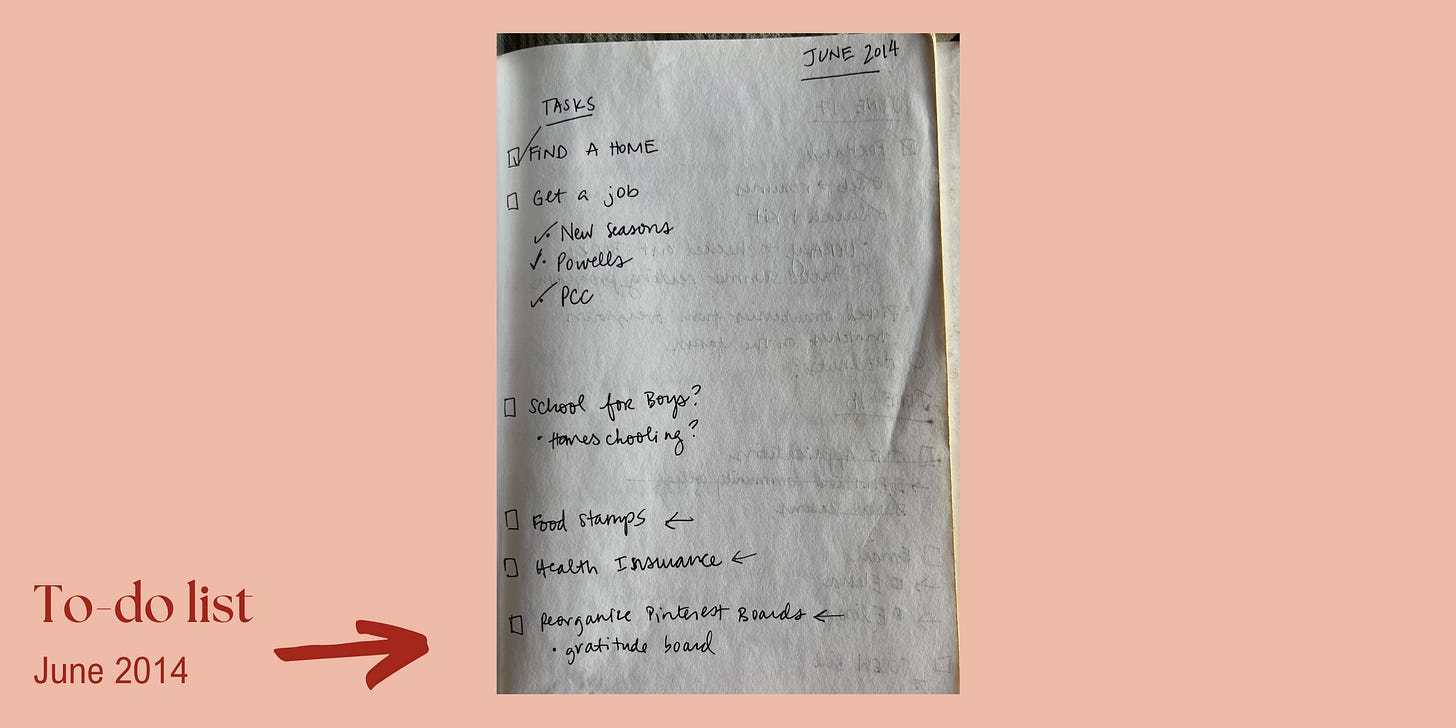 JUNE 2014
TASKS
FIND A HOME
Get a job
New Seasons
Powells
PCC
School for Boys?
Homeschooling?
Food Stamps ←
Health Insurance ←
Reorganize Pinterest Boards ←
gratitude board
To-do list
June 2014